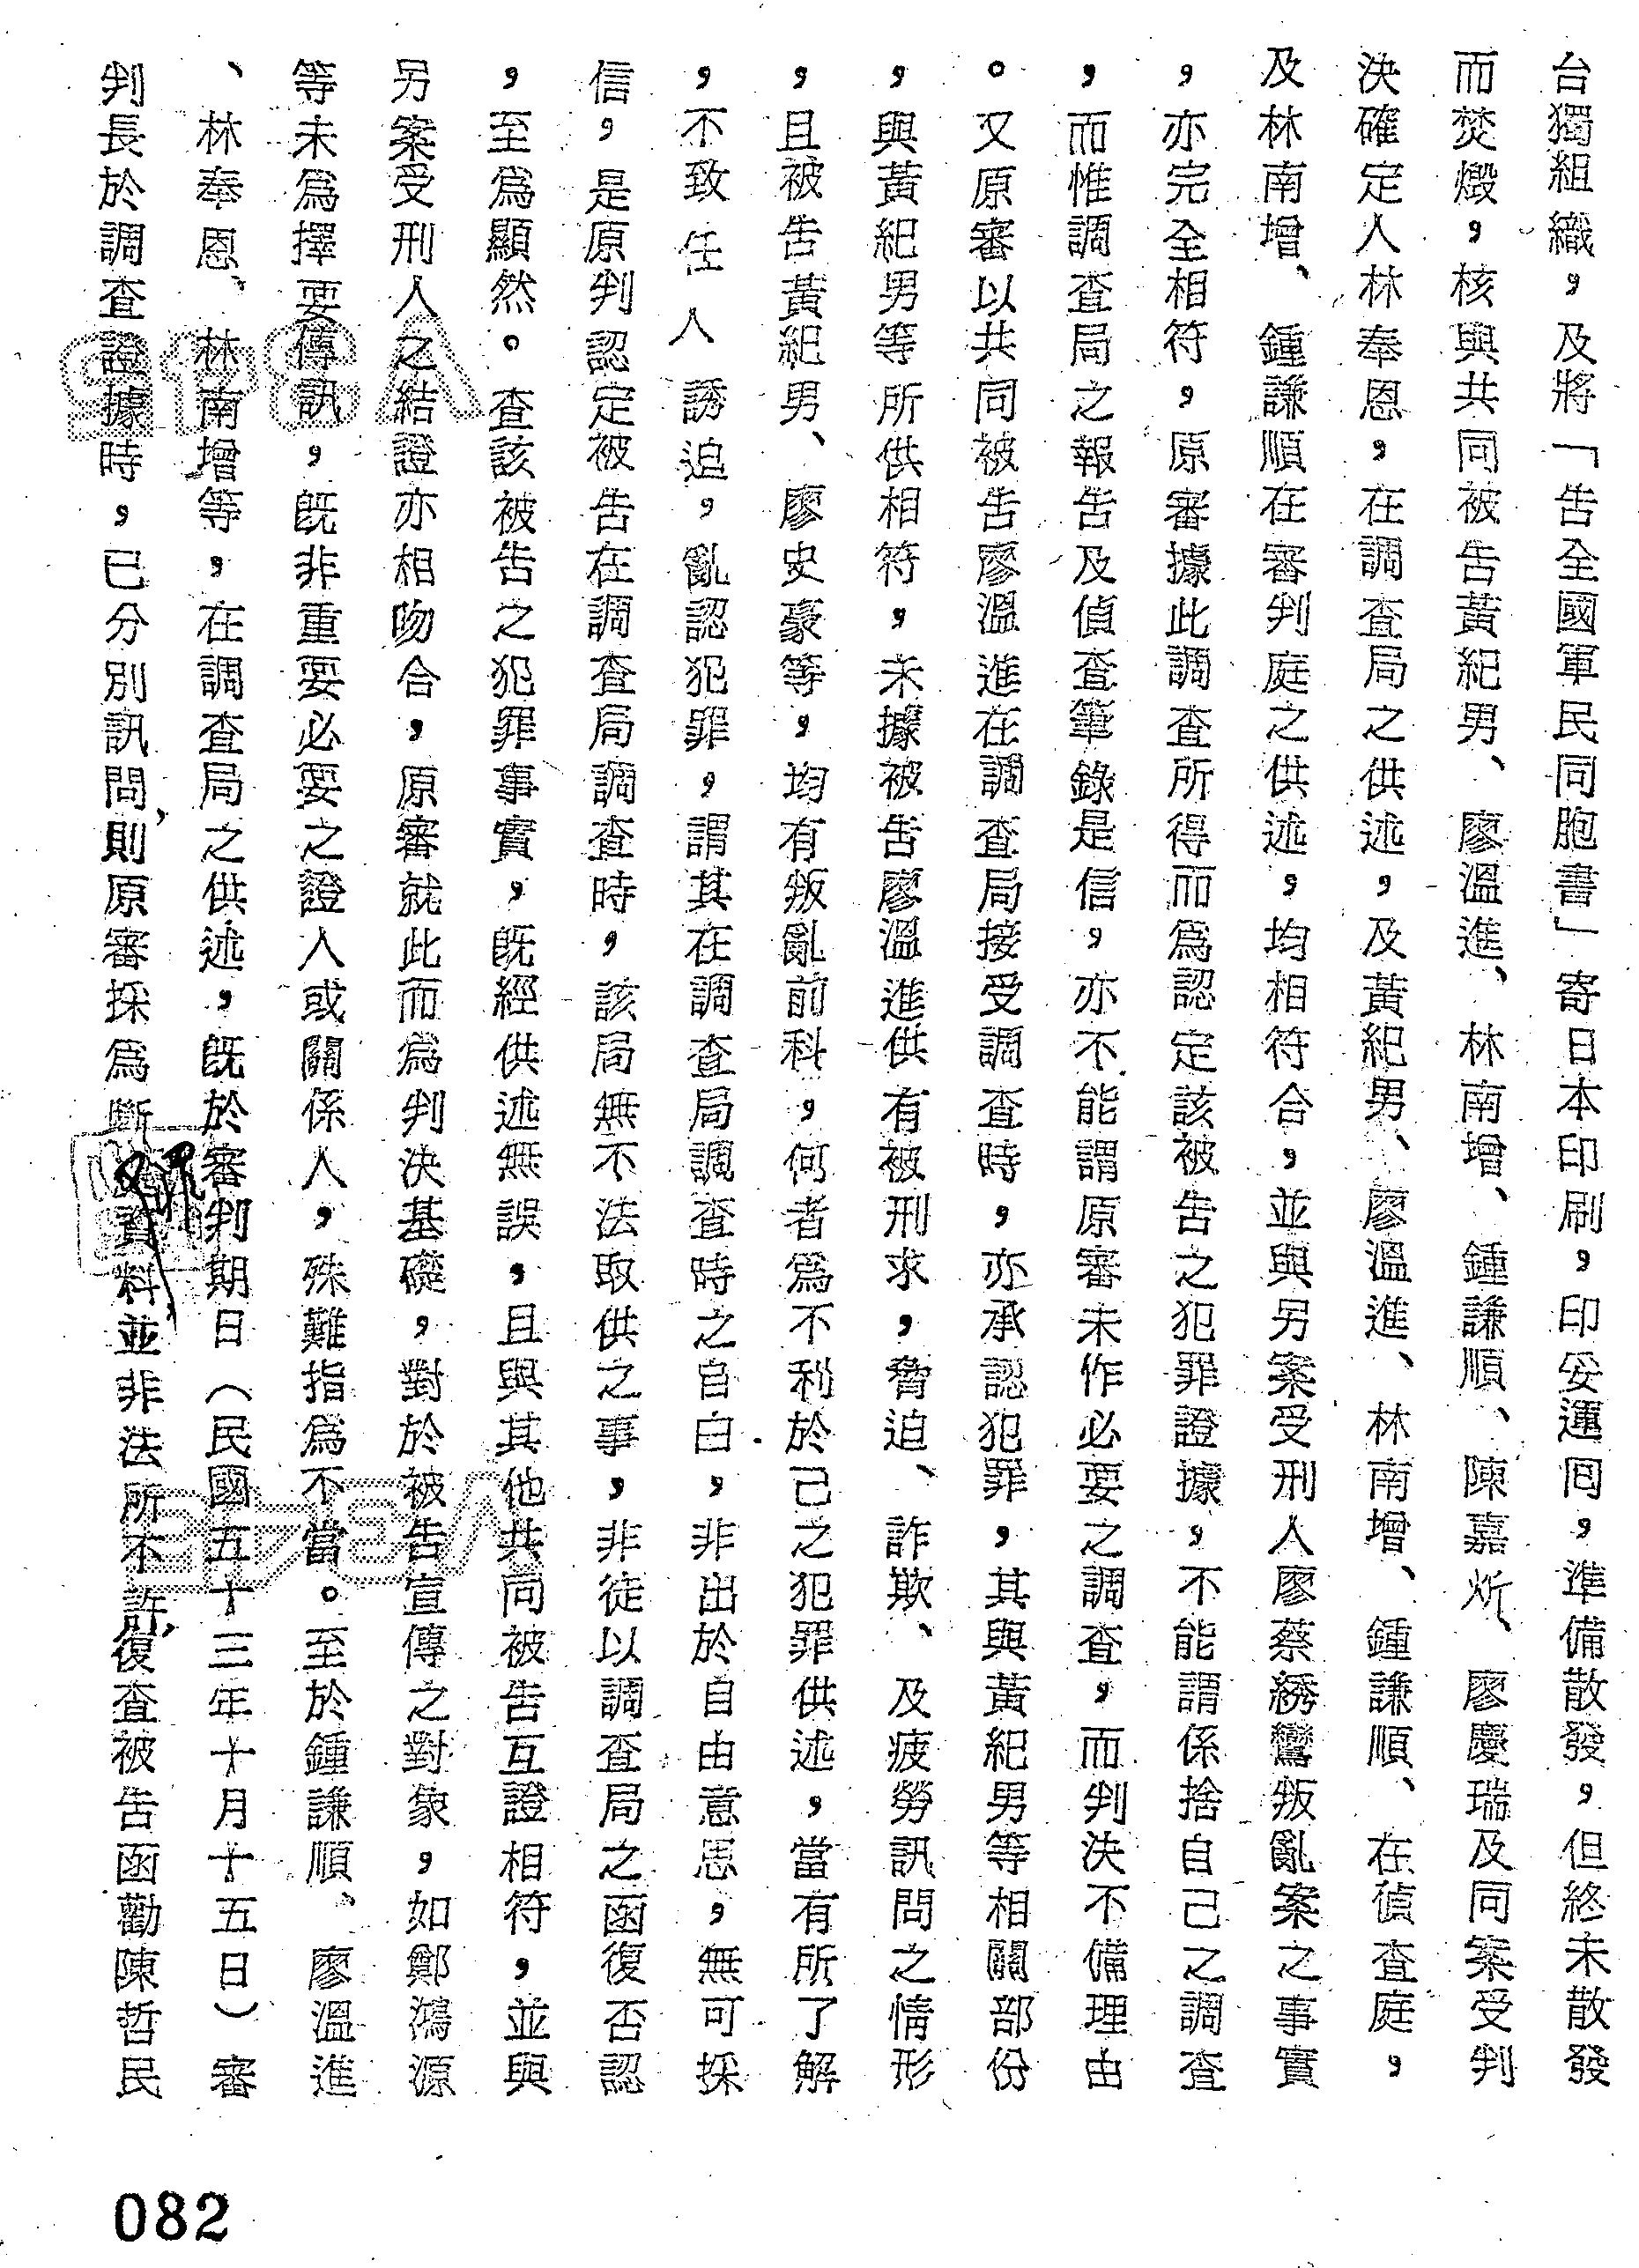 台獨組織，及將「告全國軍民同胞書」寄日本印刷，印妥運回，準備散發，但終未散發
而焚燬，核與共同被告黃紀男、廖溫進、林南增、鍾謙順、陳嘉炘、廖慶瑞及同案受判
決確定人林奉恩，在調查局之供述，及黃紀男、廖溫進、林南增、鍾謙順、在偵查庭，
及林南增、鍾謙順在審判庭之供述，均相符合，並與另案受刑人廖蔡綉鸞叛亂案之事實
，亦完全相符，原審據此調查所得而為認定該被告之犯罪證據，不能謂係捨自己之調查
，而惟調查局之報告及偵查筆錄是信，亦不能謂原審未作必要之調查，而判決不備理由
。又原審以共同被告廖溫進在調查局接受調查時，亦承認犯罪，其與黃紀男等相關部份
，與黃紀男等所供相符，未據被告廖溫進供有被刑求，脅迫、詐欺、及疲勞訊問之情形
，且被告黃紀男、廖史豪等，均有叛亂前科，何者為不利於己之犯罪供述，當有所了解
，不致任人誘迫，亂認犯罪，謂其在調查局調查時之自白，非出於自由意思，無可採
信，是原判認定被告在調查局調查時，該局無不法取供之事，非徒以調查局之函復否認
，至為顯然。查該被告之犯罪事實，既經供述無誤，且與其他共同被告互證相符，並與
另案受刑人之結證亦相吻合，原審就此而為判決基礎，對於被告宣傳之對象，如鄭鴻源
等未為擇要傳訊，既非重要必要之證人或關係人，殊難指為不當。至於鍾謙順、廖溫進
、林奉恩、林南增等，在調查局之供述，既於審判期日（民國五十三年十月十五日）審
判長於調查證據時，已分別訊問，則原審採為斷資料並非法所不許，復查被告函勸陳哲民
082